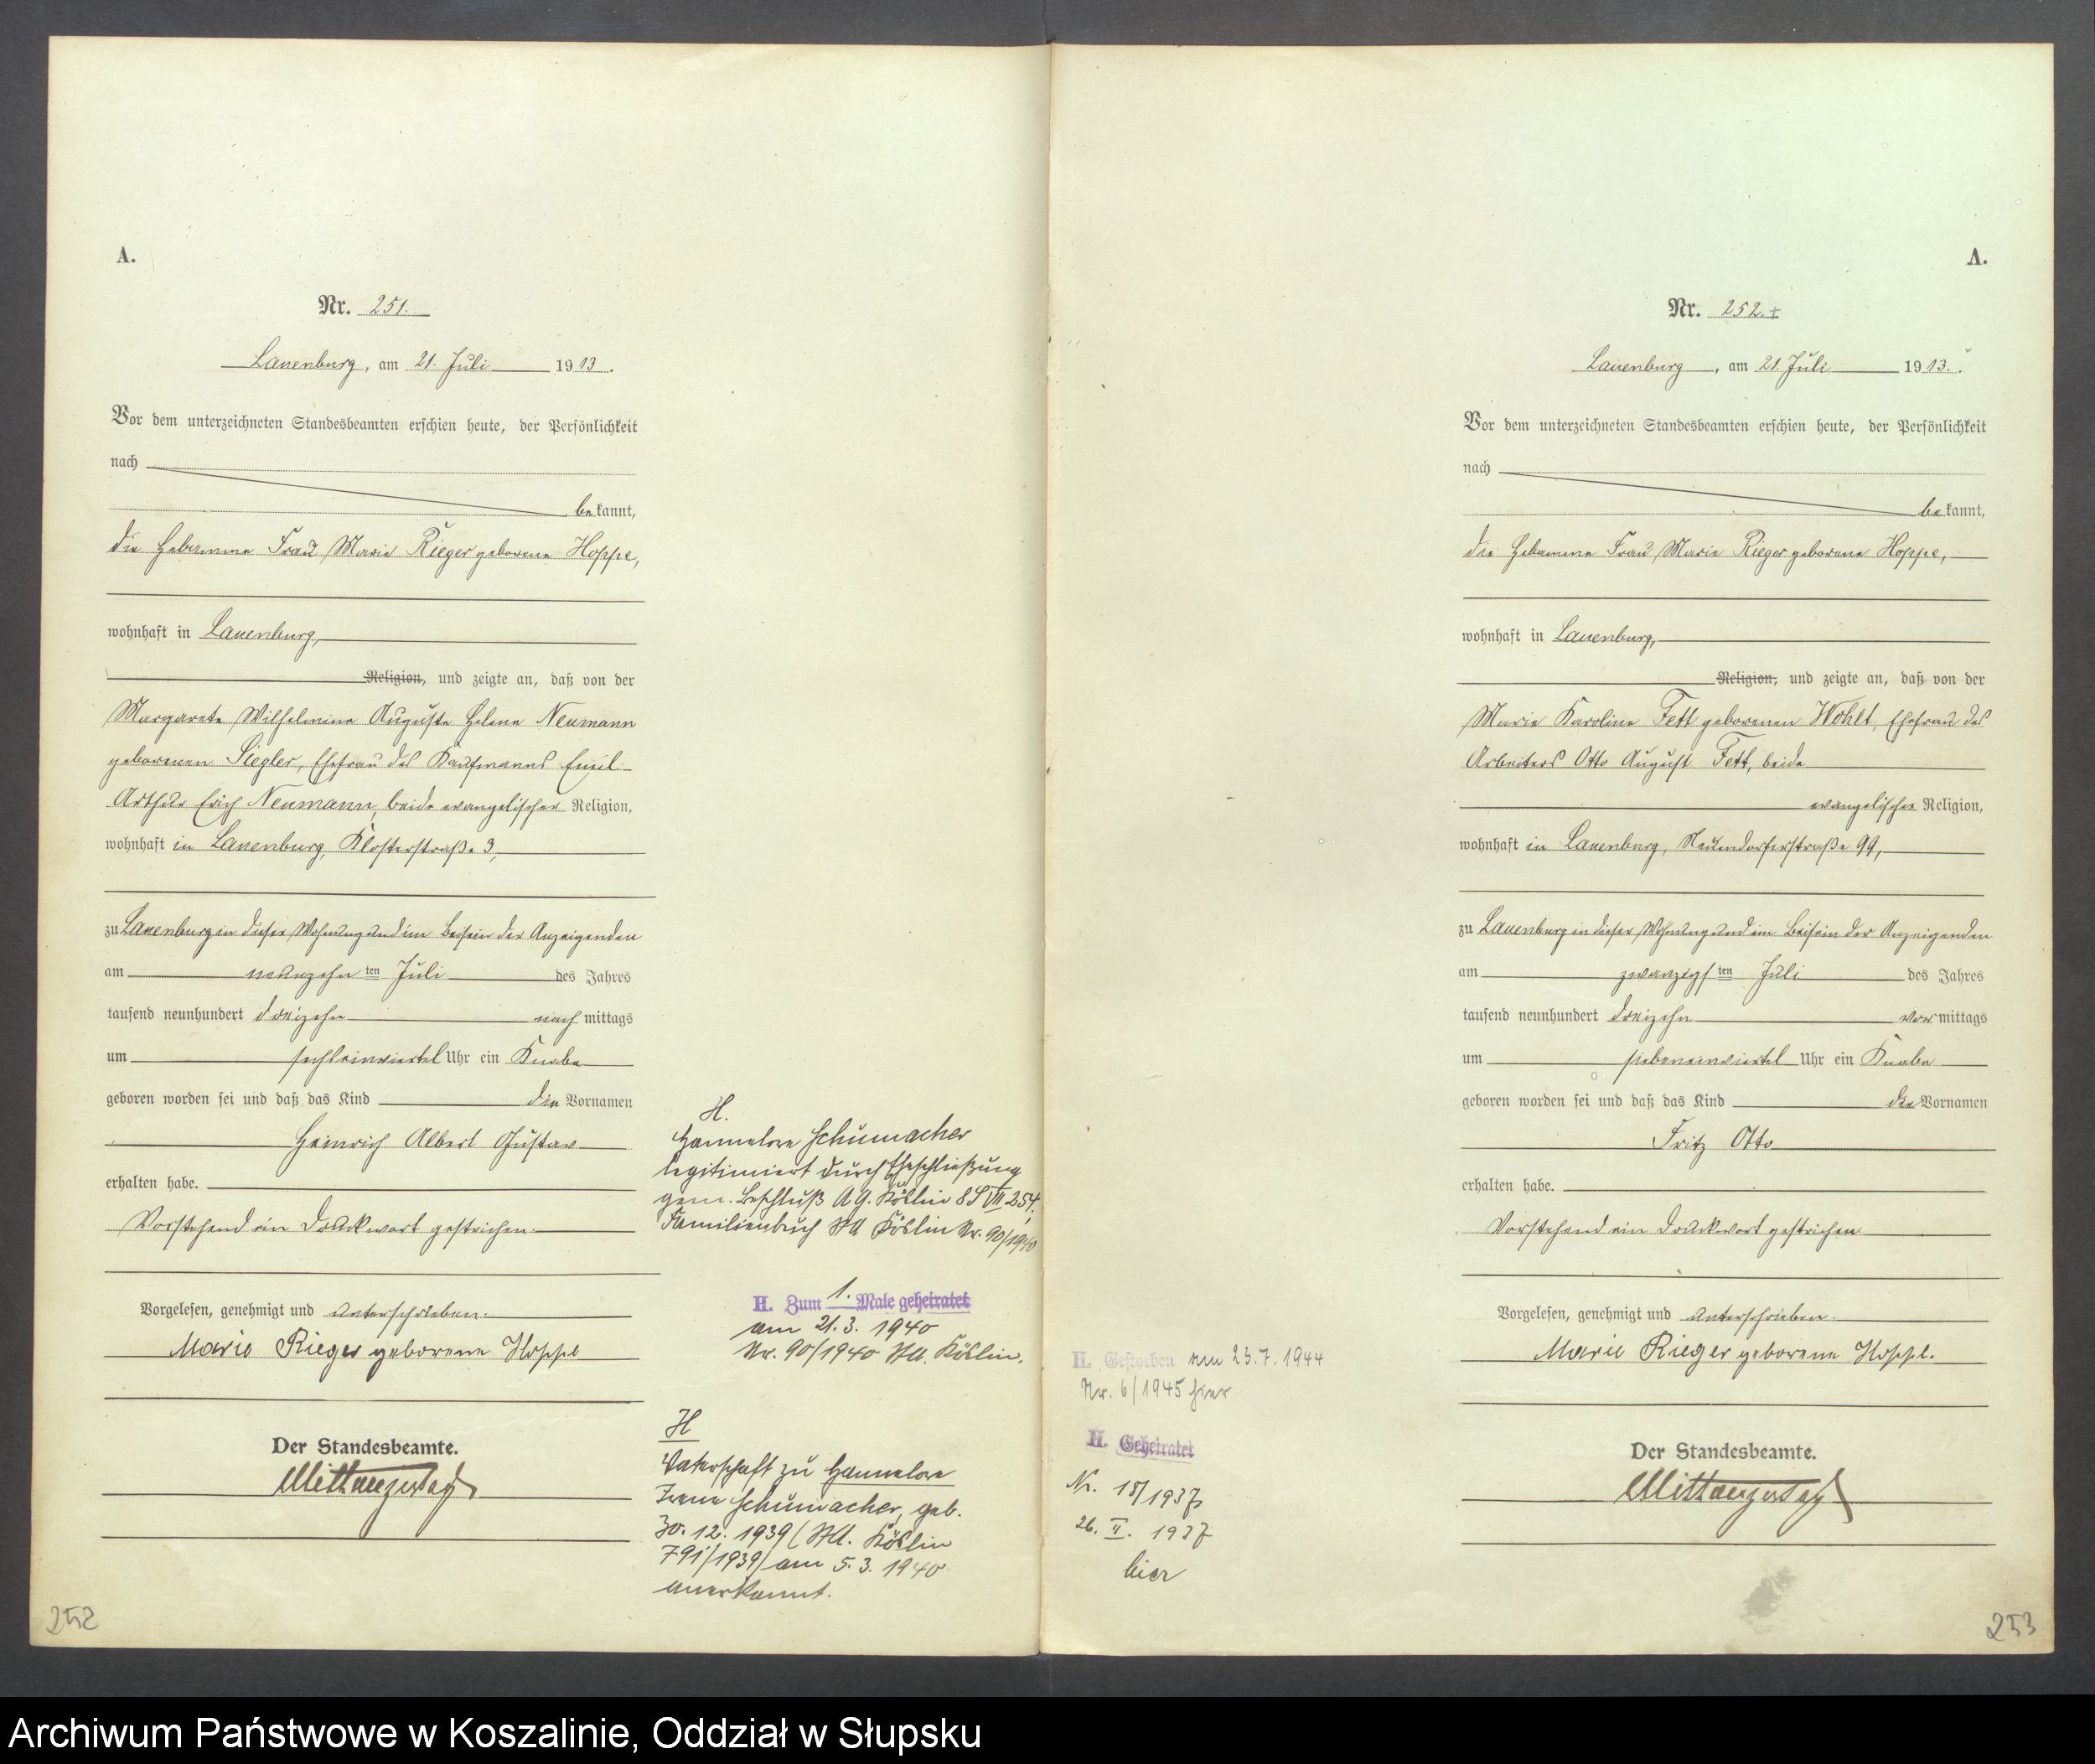 A.
Nr. 251.
Lauenburg, am 21. Juli 1913.
Vor dem unterzeichneten Standesbeamten erschien heute, der Persönlichkeit
nach
bekannt,
die Hebamme Frau Marie Rieger geborene Hoppe,
wohnhaft in Lauenburg,
Religion, und zeigte an, daß von der
Margarete Wilhelmine Auguste Helene Neumann
geborenen Siegler, Ehefrau des Kaufmanns Emil
Arthur Erich Neumann, beide evangelischer Religion,
wohnhaft in Lauenburg, Klosterstraße 3,
zu Lauenburg in dieser Wohnung und im Beisein der Anzeigenden
am neunzehnten Juli des Jahres
tausend neunhundert dreizehn nachmittags
um sechseinviertel Uhr ein Knabe
geboren worden sei und daß das Kind die Vornamen
Heinrich Albert Gustav
erhalten habe.
Vorstehend ein Druckwort gestrichen.
Vorgelesen, genehmigt und unterschrieben.
Marie Rieger geborene Hoppe
Der Standesbeamte.
252
H.
Hannelore Schumacher
legitimiert durch Eheschließung
gem. Beschluß A.G. Köslin 8 S VII 254.
Familienbuch StA Köslin Nr. 90/1940
H. Zum 1. Male geheiratet
am 21.3.1940
Nr. 90/1940 StA. Köslin.
H
Vaterschaft zu Hannelore
Irene Schumacher, geb.
30.12.1939 (StA. Köslin
791/1939) am 5.3.1940
anerkannt.
H. Gestorben am 23.7.1944
Nr. 6/1945 hier
H. Geheiratet
Nr. 18/1937
26. II. 1937
hier
A.
Nr. 252.+
Lauenburg, am 21. Juli 1913.
Vor dem unterzeichneten Standesbeamten erschien heute, der Persönlichkeit
nach
bekannt,
die Hebamme Frau Marie Rieger geborene Hoppe,
wohnhaft in Lauenburg,
Religion, und zeigte an, daß von der
Marie Karoline Fett geborenen Wohlt, Ehefrau des
Arbeiters Otto August Fett, beide
evangelischer Religion,
wohnhaft in Lauenburg, Neuendorferstraße 99,
zu Lauenburg in dieser Wohnung und im Beisein der Anzeigenden
am zwanzigsten Juli des Jahres
tausend neunhundert dreizehn vormittags
um siebeneinviertel Uhr ein Knabe
geboren worden sei und daß das Kind die Vornamen
Fritz Otto
erhalten habe.
Vorstehend ein Druckwort gestrichen
Vorgelesen, genehmigt und unterschrieben.
Marie Rieger geborene Hoppe.
Der Standesbeamte.
253
Archiwum Państwowe w Koszalinie, Oddział w Słupsku